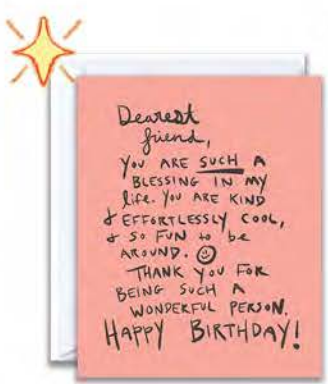 Dearest
friend,
YOU ARE SUCH A
BLESSING IN MY
life. YOU ARE KIND
& EFFORTLESSLY COOL,
& SO FUN to be
AROUND. ☺
THANK YOU FOR
BEING SUCH A
WONDERFUL PERSON.
HAPPY BIRTHDAY!